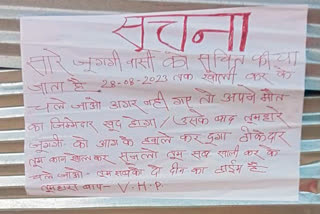 सूचना
सारे जुग्गी वासी को सुचित की या
जाता है 28-08-2023 तक खाली कर के
चले जाओ अगर नही गए तो अपने मौत
का जिम्मेदार खुद होगा / उसके बाद तुम्हारे
जुग्गी को आग के हवाले कर दुगा ठीकेदार
तुम कान खोलकर सुनलो तुम सब खाली कर के
चले जाओ - तुम सबको दो दीन का टाईम है
तुम्हारा बाप - V.H.P.